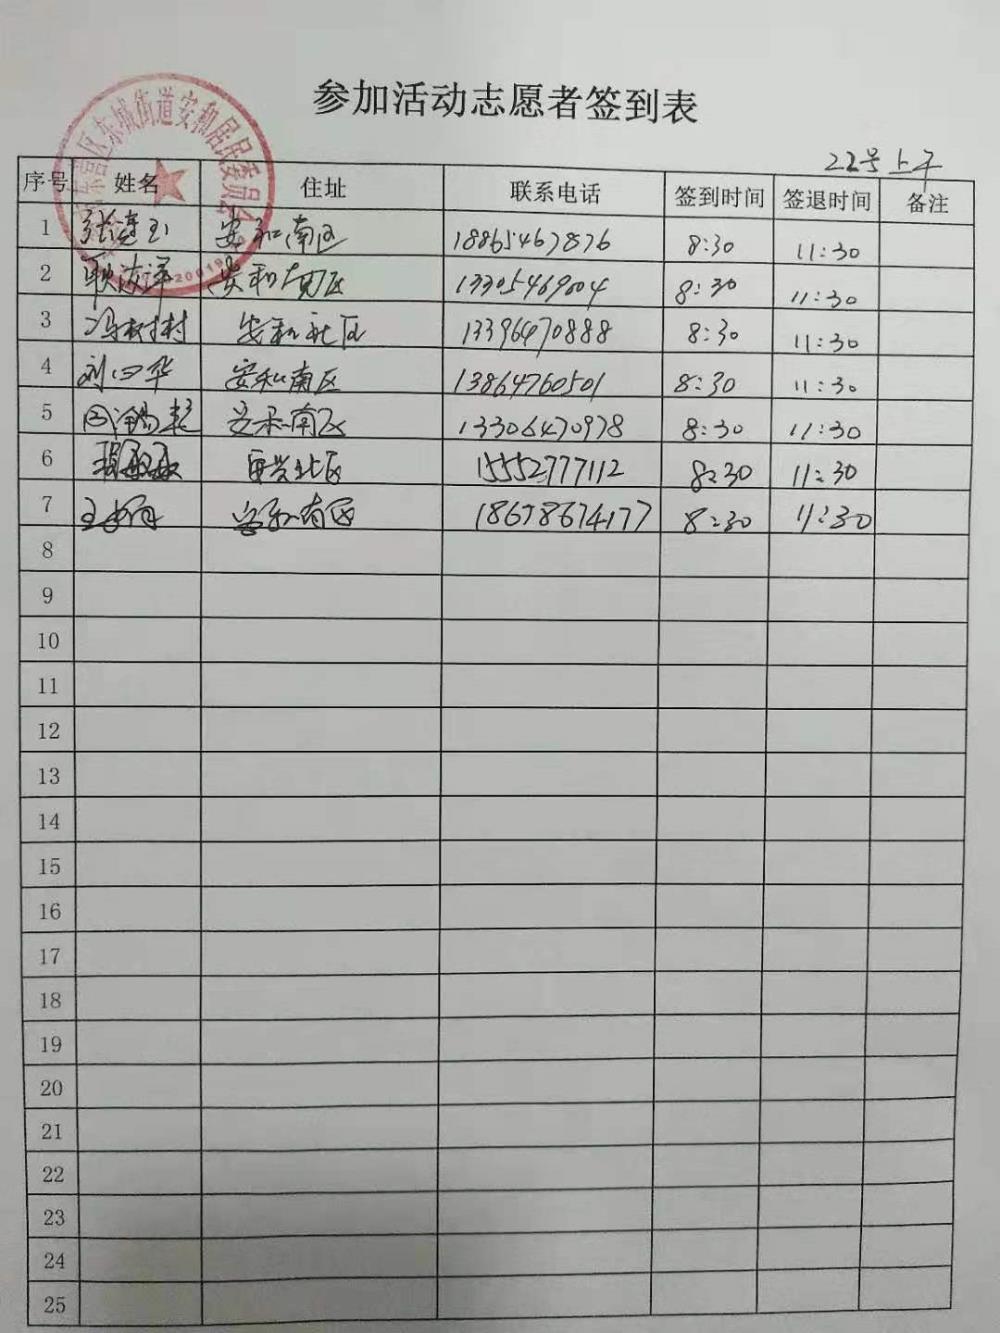 参加活动志愿者签到表
22号上午
东营区东城街道安和居民委员会
序号 姓名 住址 联系电话 签到时间 签退时间 备注
1 张建玉 安和南区 18865467876 8:30 11:30
2 安和南区 13305469604 8:30 11:30
3 冯树村 安和社区 13396470888 8:30 11:30
4 刘四华 安和南区 13864760501 8:30 11:30
5 安和南区 13306470978 8:30 11:30
6 北区 15552777112 8:30 11:30
7 王 安和南区 18678674177 8:30 11:30
8
9
10
11
12
13
14
15
16
17
18
19
20
21
22
23
24
25